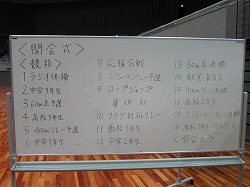 <開会式>
<競技>
1 ラジオ体操
2 中学3年生
3 60m走予選
4 高校3年生
5 400mリレー予選
6 中学1年生
7 人検合戦
8 スウェーデンリレー予選
9 ロープジャンプ
昼休み
10 クラブ対抗リレー
11 高校1年生
12 中学2年生
13 60m走決勝
14 教員
15 400mリレー決勝
16 高校2年生
17 スウェーデンリレー決勝
18
<閉会式>